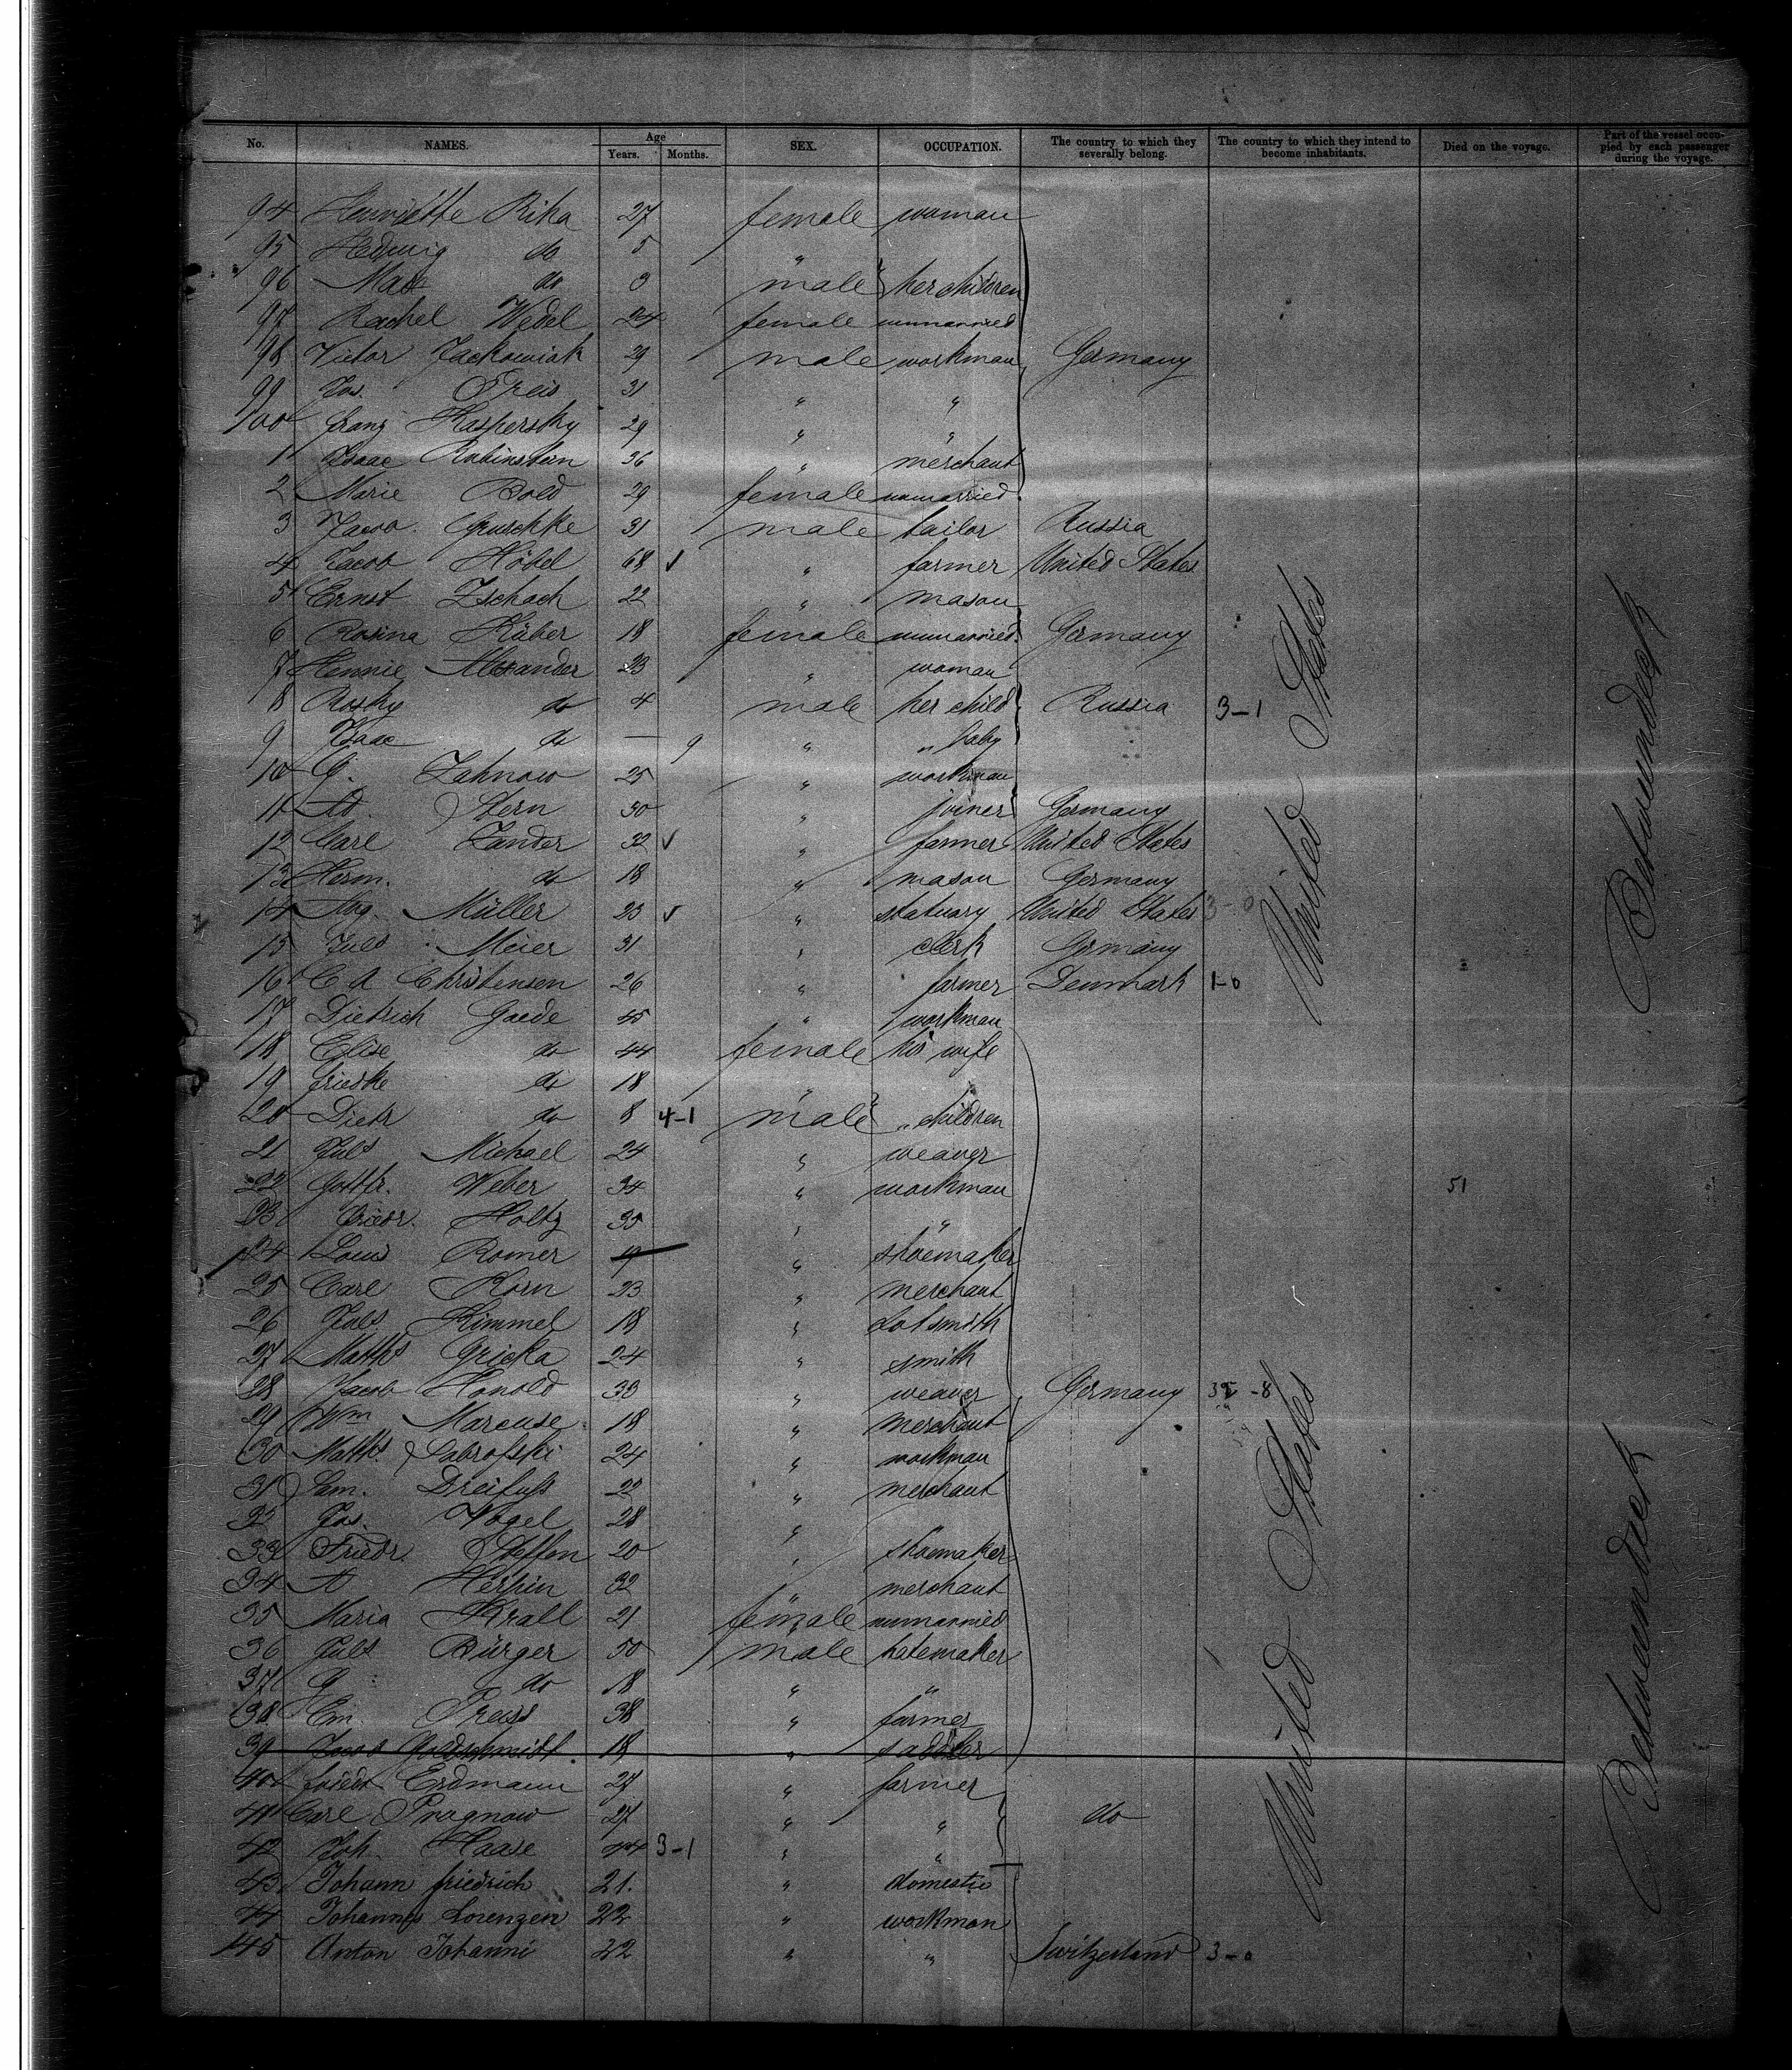 No. NAMES. Age Years. Months. SEX. OCCUPATION. The country to which they severally belong. The country to which they intend to become inhabitants. Died on the voyage. Part of the vessel occupied by each passenger during the voyage.
94 Henriette Rika 27 female woman
95 Hedwig do 5 "
96 Max do 3 male her children
97 Rachel Wedel 24 female unmarried
98 Victor Jackowiak 29 male workman Germany
99 Jos. Preis 31 " "
100 Franz Kaspersky 29 " "
1 Isaac Rubinstein 36 " merchant
2 Marie Bold 29 female unmarried
3 Jacob Gruschke 31 male tailor Russia
4 Jacob Höbel 68 " farmer United States
5 Ernst Zschach 22 " mason
6 Rosina Käber 18 female unmarried Germany
7 Hennie Alexander 23 " woman
8 Rosky do 4 male her child Russia 3-1
9 Isaac do — 9 " " baby
10 G. Zahnow 25 " workman
11 Ad. Stern 30 " joiner Germany
12 Carl Zander 32 " farmer United States
13 Herm. do 18 " mason Germany
14 Aug. Müller 23 " statuary United States 3-0
15 Juls Meier 31 " clerk Germany
16 C A Christensen 26 " farmer Denmark 1-0
17 Dietrich Gaede 45 " workman
18 Elise do 44 female his wife
19 Friedke do 18 "
20 Dietr do 8 4-1 male " children
21 Juls Michael 24 " weaver
22 Gottfr. Weber 34 " workman 51
23 Friedr. Holtz 35 " "
24 Louis Romer 19 " shoemaker
25 Carl Korn 23 " merchant
26 Juls Kimmel 18 " lotsmith
27 Matths Gricka 24 " smith
28 Jacob Honold 33 " weaver Germany -8
29 Wm Marcuse 18 " merchant
30 Matths. Sabrofski 24 " workman
31 Sam. Dreifuss 22 " merchant
32 Jos. Vogel 28 "
33 Friedr Steffen 20 " shoemaker
34 A Herpin 32 " merchant
35 Maria Krall 21 female unmarried
36 Juls Bürger 50 male hatemaker
37 G do 18 " "
38 Em. Preiss 38 " farmer
39 Jacob Goldschmidt 18 " saddler
40 Friedr Erdmann 27 " farmer
41 Carl Pragnow 27 " " do
42 Joh. Haase 44 3-1 " "
43 Johann Friedrich 21. " domestic
44 Johannes Lorenzen 22 " workman
145 Anton Johanni 22 " " Switzerland 3-0
United States
Betweendeck
United States
Betweendeck